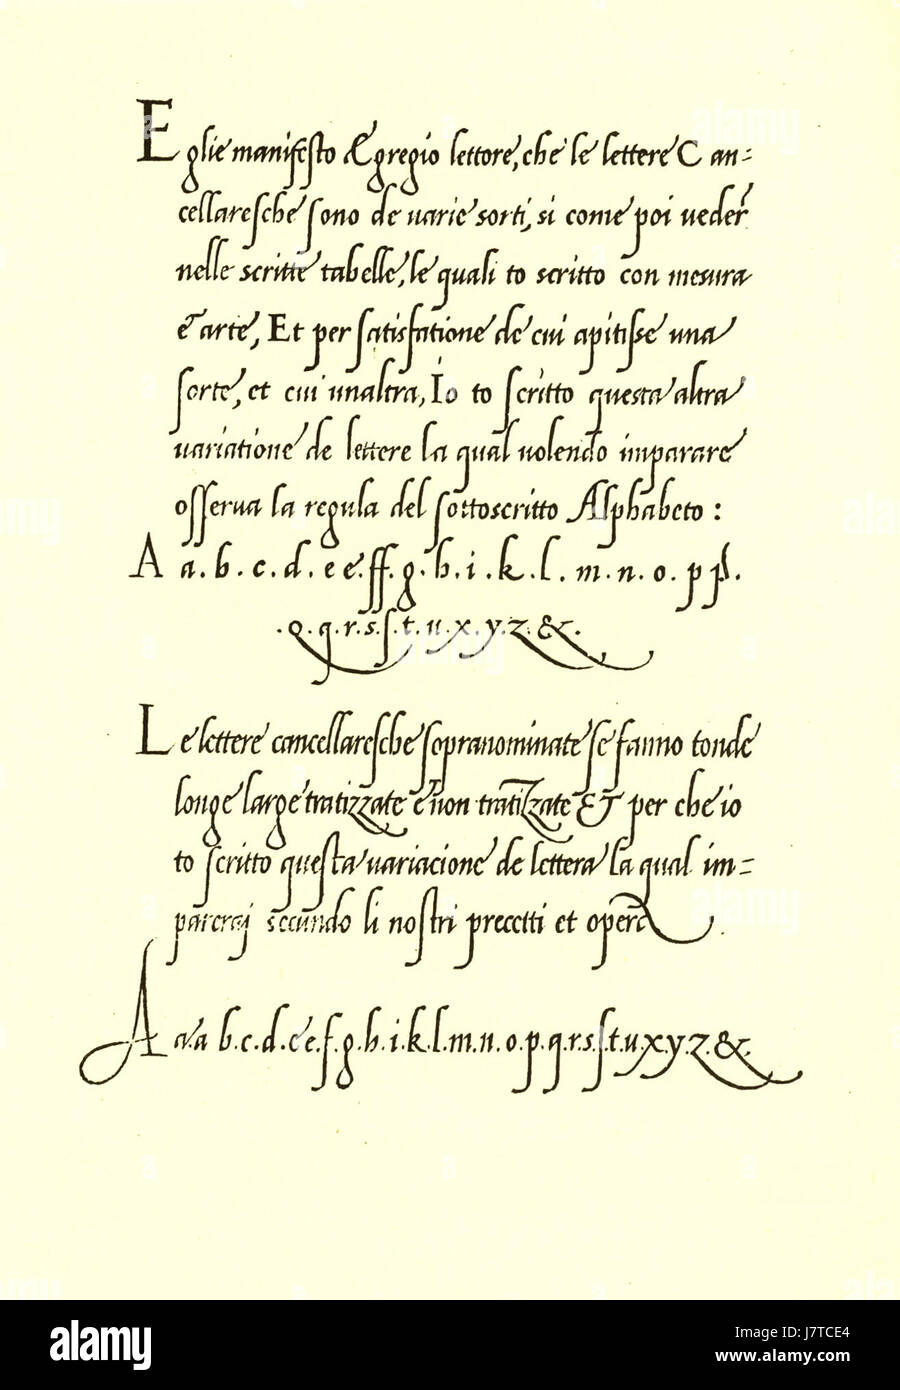 Eglie manifesto Egregio lettore, che le lettere Can=
cellaresche sono de varie sorti, si come poi veder
nelle scritte tabelle, le quali to scritto con mesura
e arte, Et per satisfatione de cui apitisse una
sorte, et cui unaltra, Io to scritto questa altra
variatione de lettere la qual volendo imparare
osserva la regula del sottoscritto Alphabeto :
A a . b . c . d . e e . ff . g . h . i . k . l . m . n . o . p p .
. q . q . r . s . s . t . u . x . y . z . & .
Le lettere cancellaresche sopranominate se fanno tonde
longe large tratizzate e non tratizzate & per che io
to scritto questa variacione de lettera la qual im=
parerai secundo li nostri precetti et opere .
A a.a b.c.d.e e.f.g.h.i.k.l.m.n.o.p.q.r.s.s.t.u.x.y.z.&.
alamy
Image ID: J7TCE4
www.alamy.com